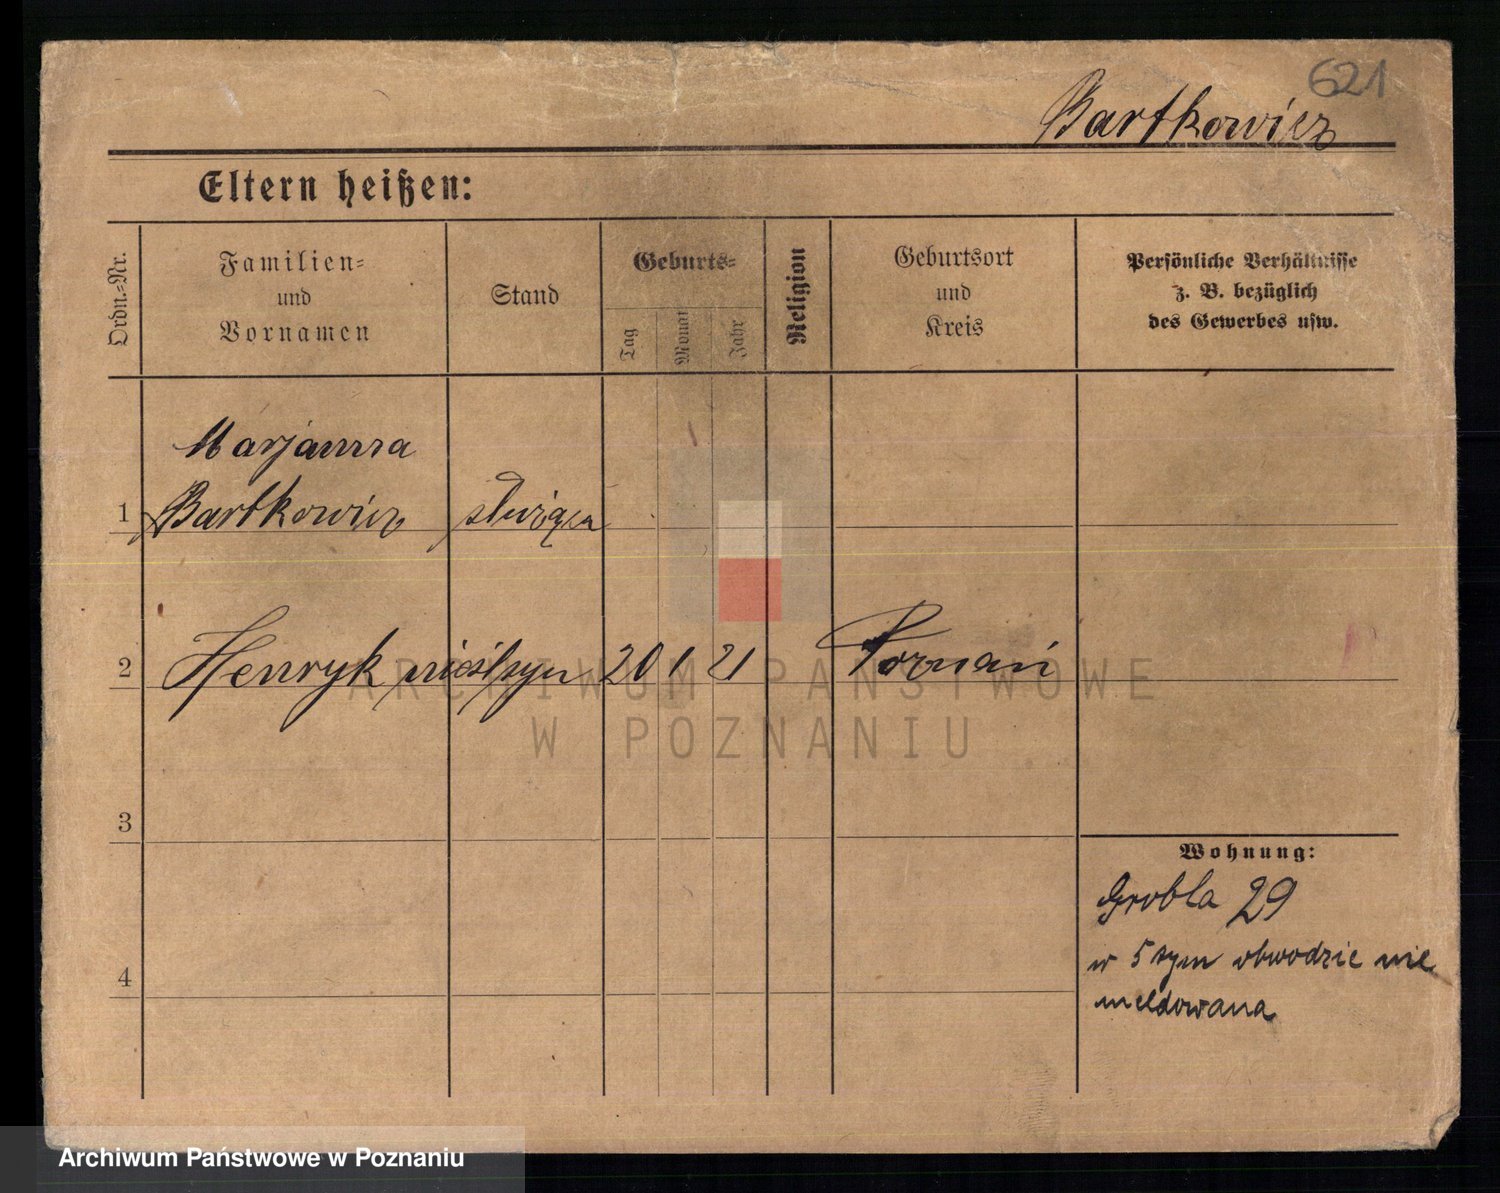 621
Bartkowicz
Eltern heißen:
Ordn.-Nr.
Familien-
und
Vornamen
Stand
Geburts-
Tag
Monat
Jahr
Religion
Geburtsort
und
Kreis
Persönliche Verhältnisse
z. B. bezüglich
des Gewerbes usw.
Marjanna
1 Bartkowicz służąca
2 Henryk nieśl syn 20 1 21 Poznań
3
Wohnung:
Grobla 29
w 5 tym obwodzie nie
meldowana
4
ARCHIWUM PAŃSTWOWE
W POZNANIU
Archiwum Państwowe w Poznaniu